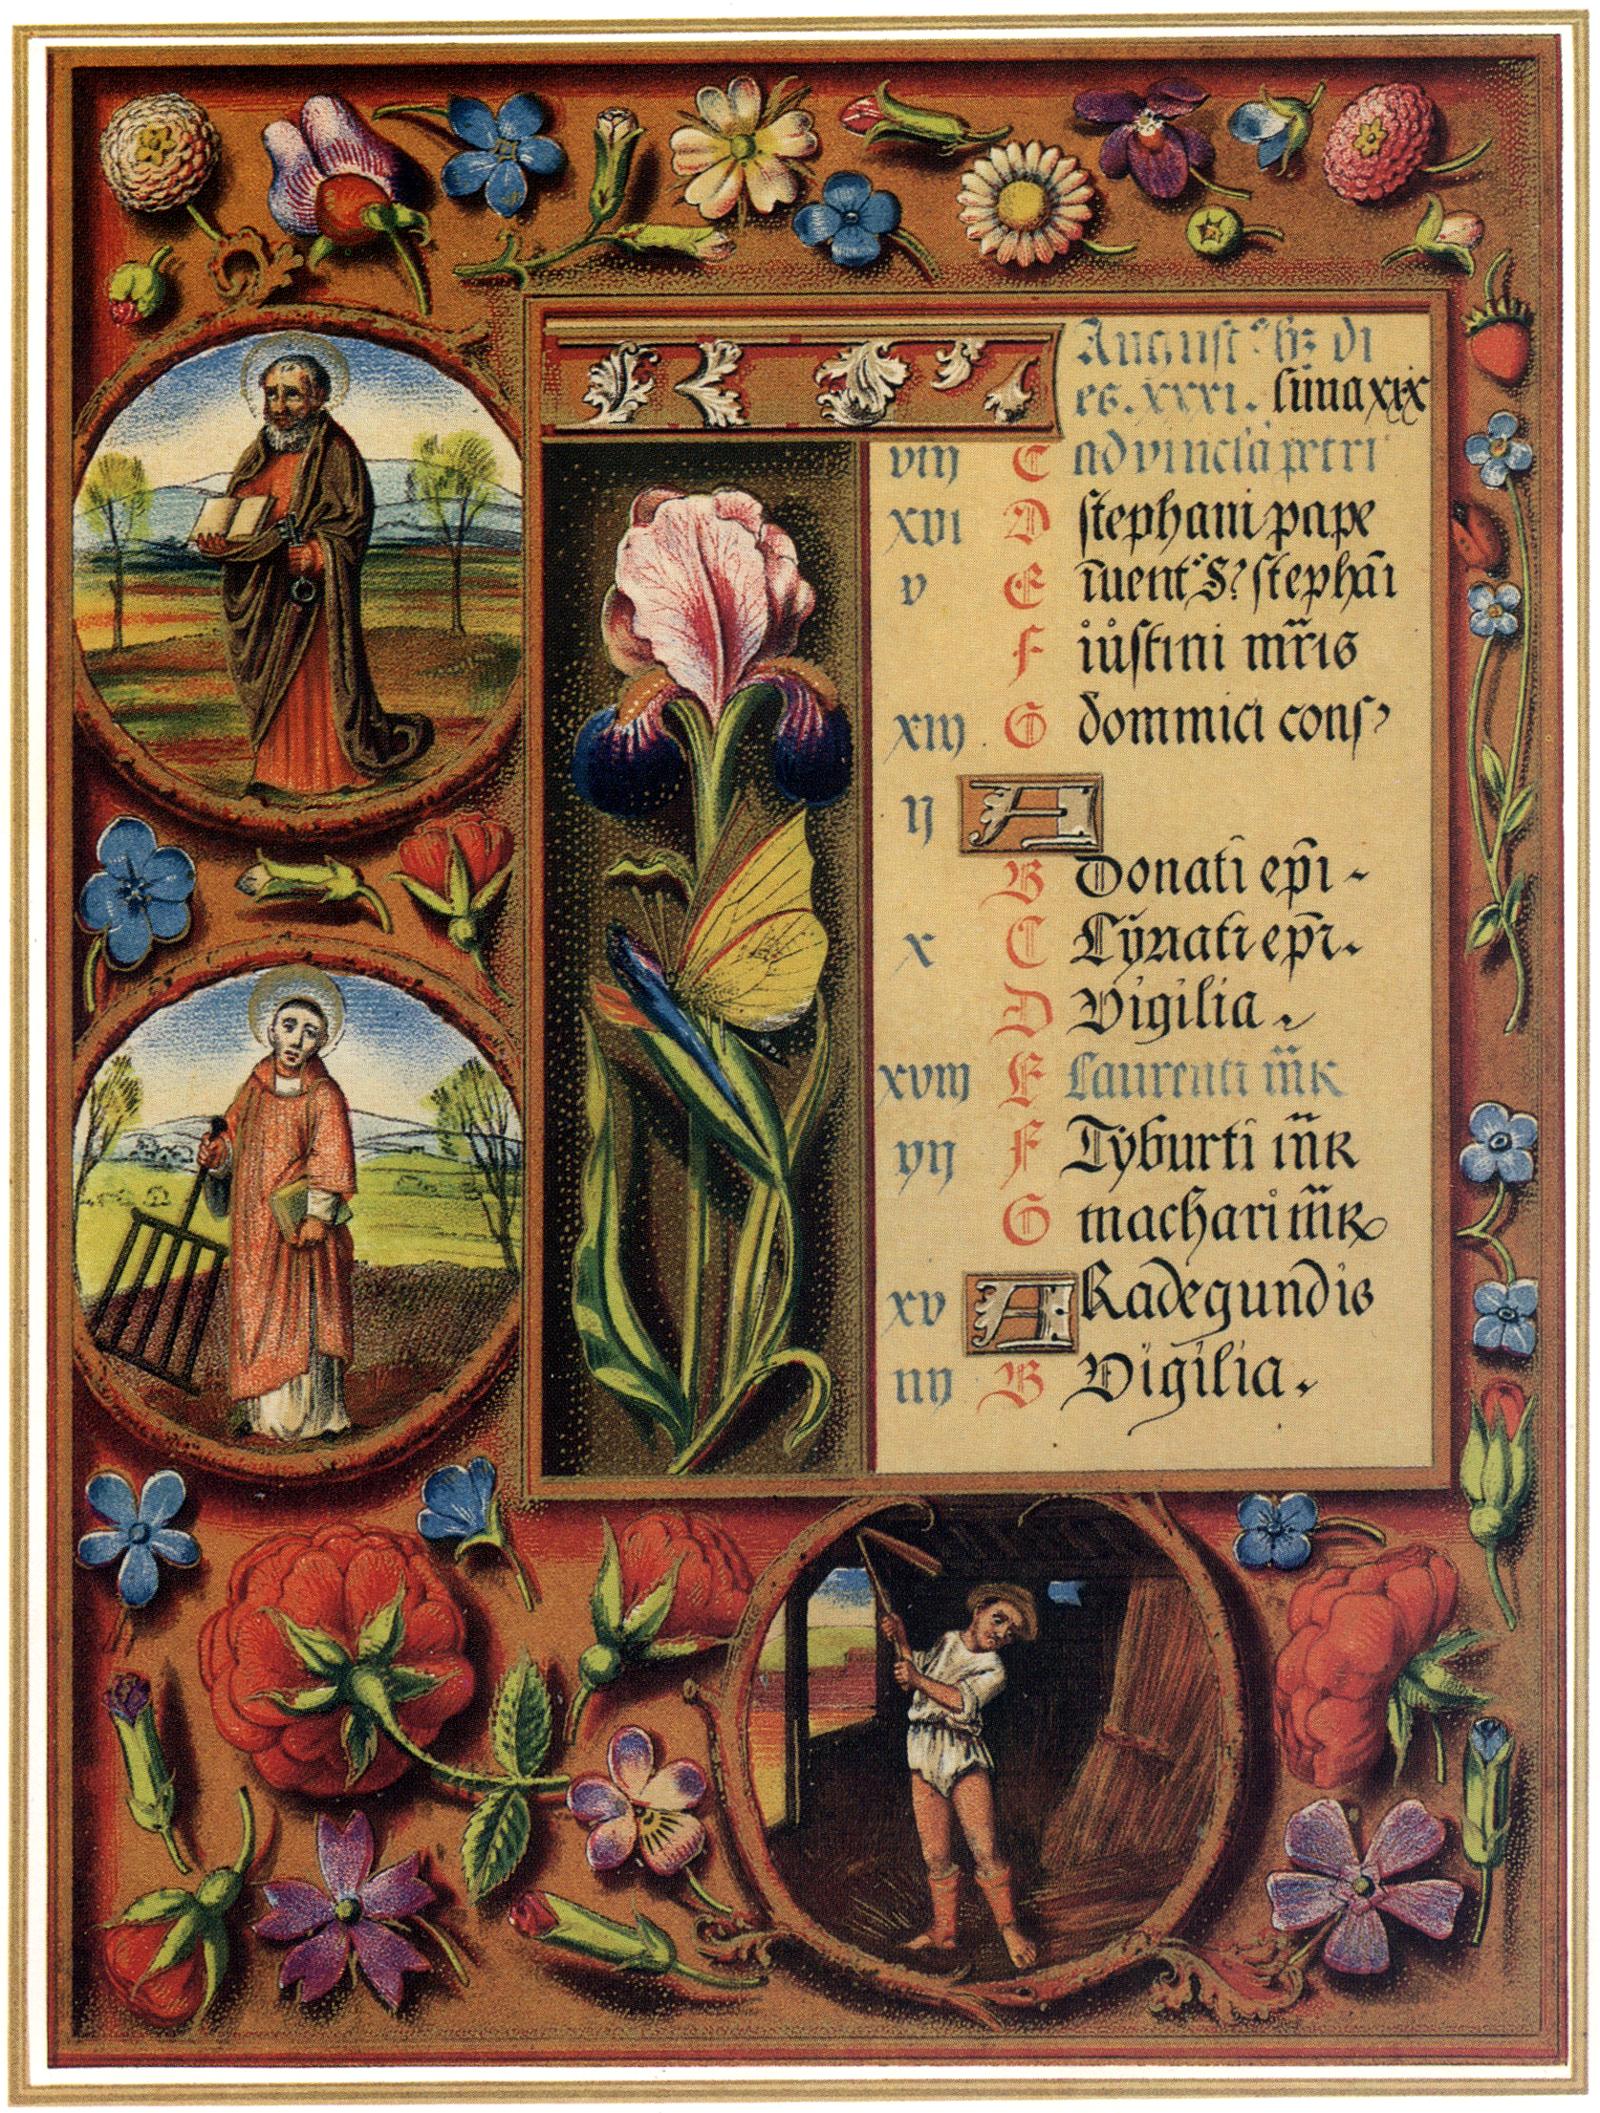 Augustꝰ hꝫ di
es. xxxi. luna xix
viij C ad vincła petri
xvi D stephani pape
v E īuentꝰ Sͥ stephāi
F iustini mr̄is
xiij G dominici cons
ij A
B Donati ep̄i
x C Cyriati ep̄i.
D Vigilia.
xviij E Laurenti m̄r
vij F Tyburti m̄r
G machari m̄r
xv A Radegundis
iiij B Vigilia.